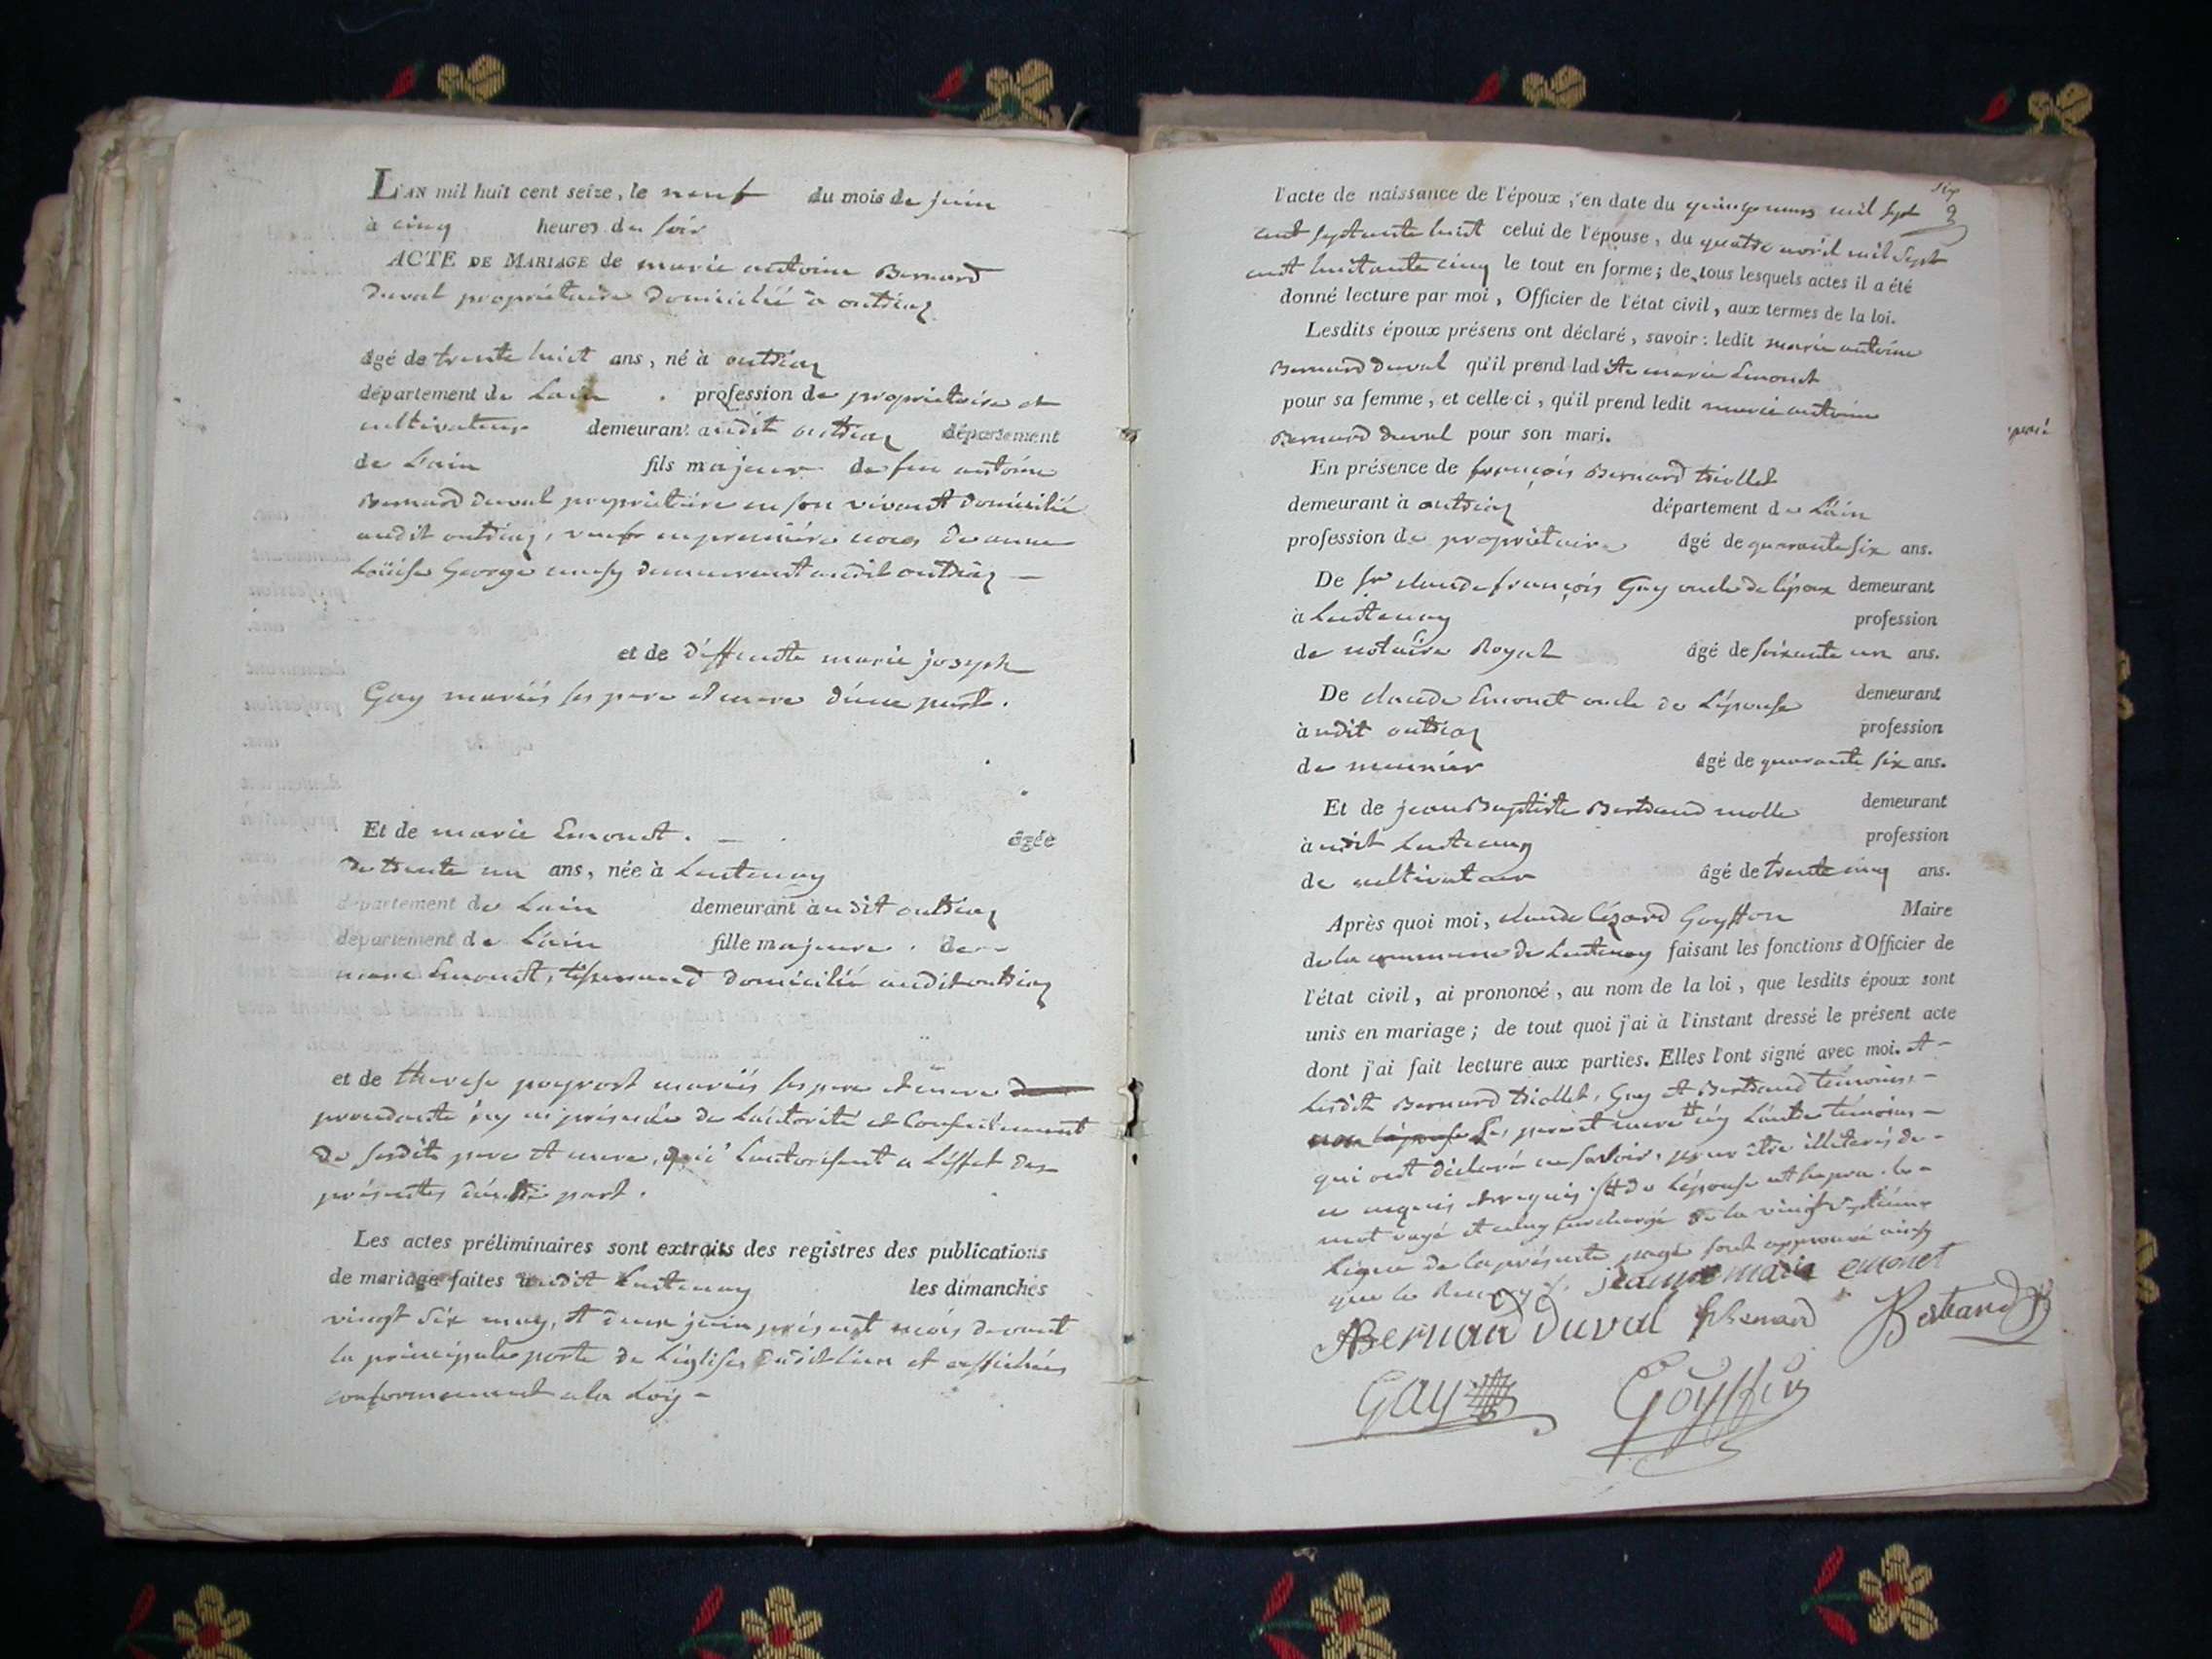 L'AN mil huit cent seize, le neuf du mois de juin
à cinq heures du soir
ACTE DE MARIAGE de marie antoine Bernard
duval propriétaire domicilié à outriaz
âgé de trente huit ans, né à outriaz
département de Lain profession de propriétaire et
cultivateur demeurant audit outriaz département
de L'ain fils majeur de feu antoine
Bernard duval propriétaire en son vivant domicilié
audit outriaz, veuf en première noces de anne
Loüise George demeurant audit outriaz
et de deffunte marie joseph
Gay mariés ses pere et mere d'une part.
Et de marie Emonet. âgée
de trente un ans, née à Lentenay
département de Lain demeurant audit outriaz
département de L'ain fille majeure de
Emonet, tisserand domicilié audit outriaz
et de therese mariés ses pere et mere
procédante en présence de Lautorité et Consentement
de sesdits pere et mere, qui Lautorisent a L'effet des
présentes d'autre part.
Les actes préliminaires sont extraits des registres des publications
de mariage faites audit Lentenay les dimanches
vingt six may, et deux juin présent mois devant
la principale porte de L'église dudit Lieu et affichées
conformement a la Loy
six
l'acte de naissance de l'époux, en date du quinze mars mil sept
cent septante huit celui de l'épouse, du quatre avril mil sept
cent huitante cinq le tout en forme; de tous lesquels actes il a été
donné lecture par moi, Officier de l'état civil, aux termes de la loi.
Lesdits époux présens ont déclaré, savoir: ledit marie antoine
Bernard duval qu'il prend ladite marie Emonet
pour sa femme, et celle-ci, qu'il prend ledit marie antoine
Bernard duval pour son mari.
En présence de françois Bernard triollet
demeurant à outriaz département de L'ain
profession de propriétaire âgé de quarante six ans.
De Sr claude françois Gay oncle de l'époux demeurant
à Lentenay profession
de notaire Royal âgé de soixante un ans.
De claude Emonet oncle de L'épouse demeurant
audit outriaz profession
de meunier âgé de quarante six ans.
Et de jean Baptiste Bertrand molle demeurant
audit Lentenay profession
de cultivateur âgé de trente cinq ans.
Après quoi moi, claude Goyffon Maire
de la commune de Lentenay faisant les fonctions d'Officier de
l'état civil, ai prononcé, au nom de la loi, que lesdits époux sont
unis en mariage; de tout quoi j'ai à l'instant dressé le présent acte
dont j'ai fait lecture aux parties. Elles l'ont signé avec moi. et
Lesdits Bernard triollet, Gay et Bertrand témoins,
Les pere et mere Lautre témoins
qui ont déclaré ne savoir, pour être illiterés de
ce enquis et requis. de L'épouse
mot rayé et surchargé de la vingt septième
Ligne de la présente page sont approuvé
jeanne marie emonet
Bernard duval Bernard Bertrand
Gay Goyffon